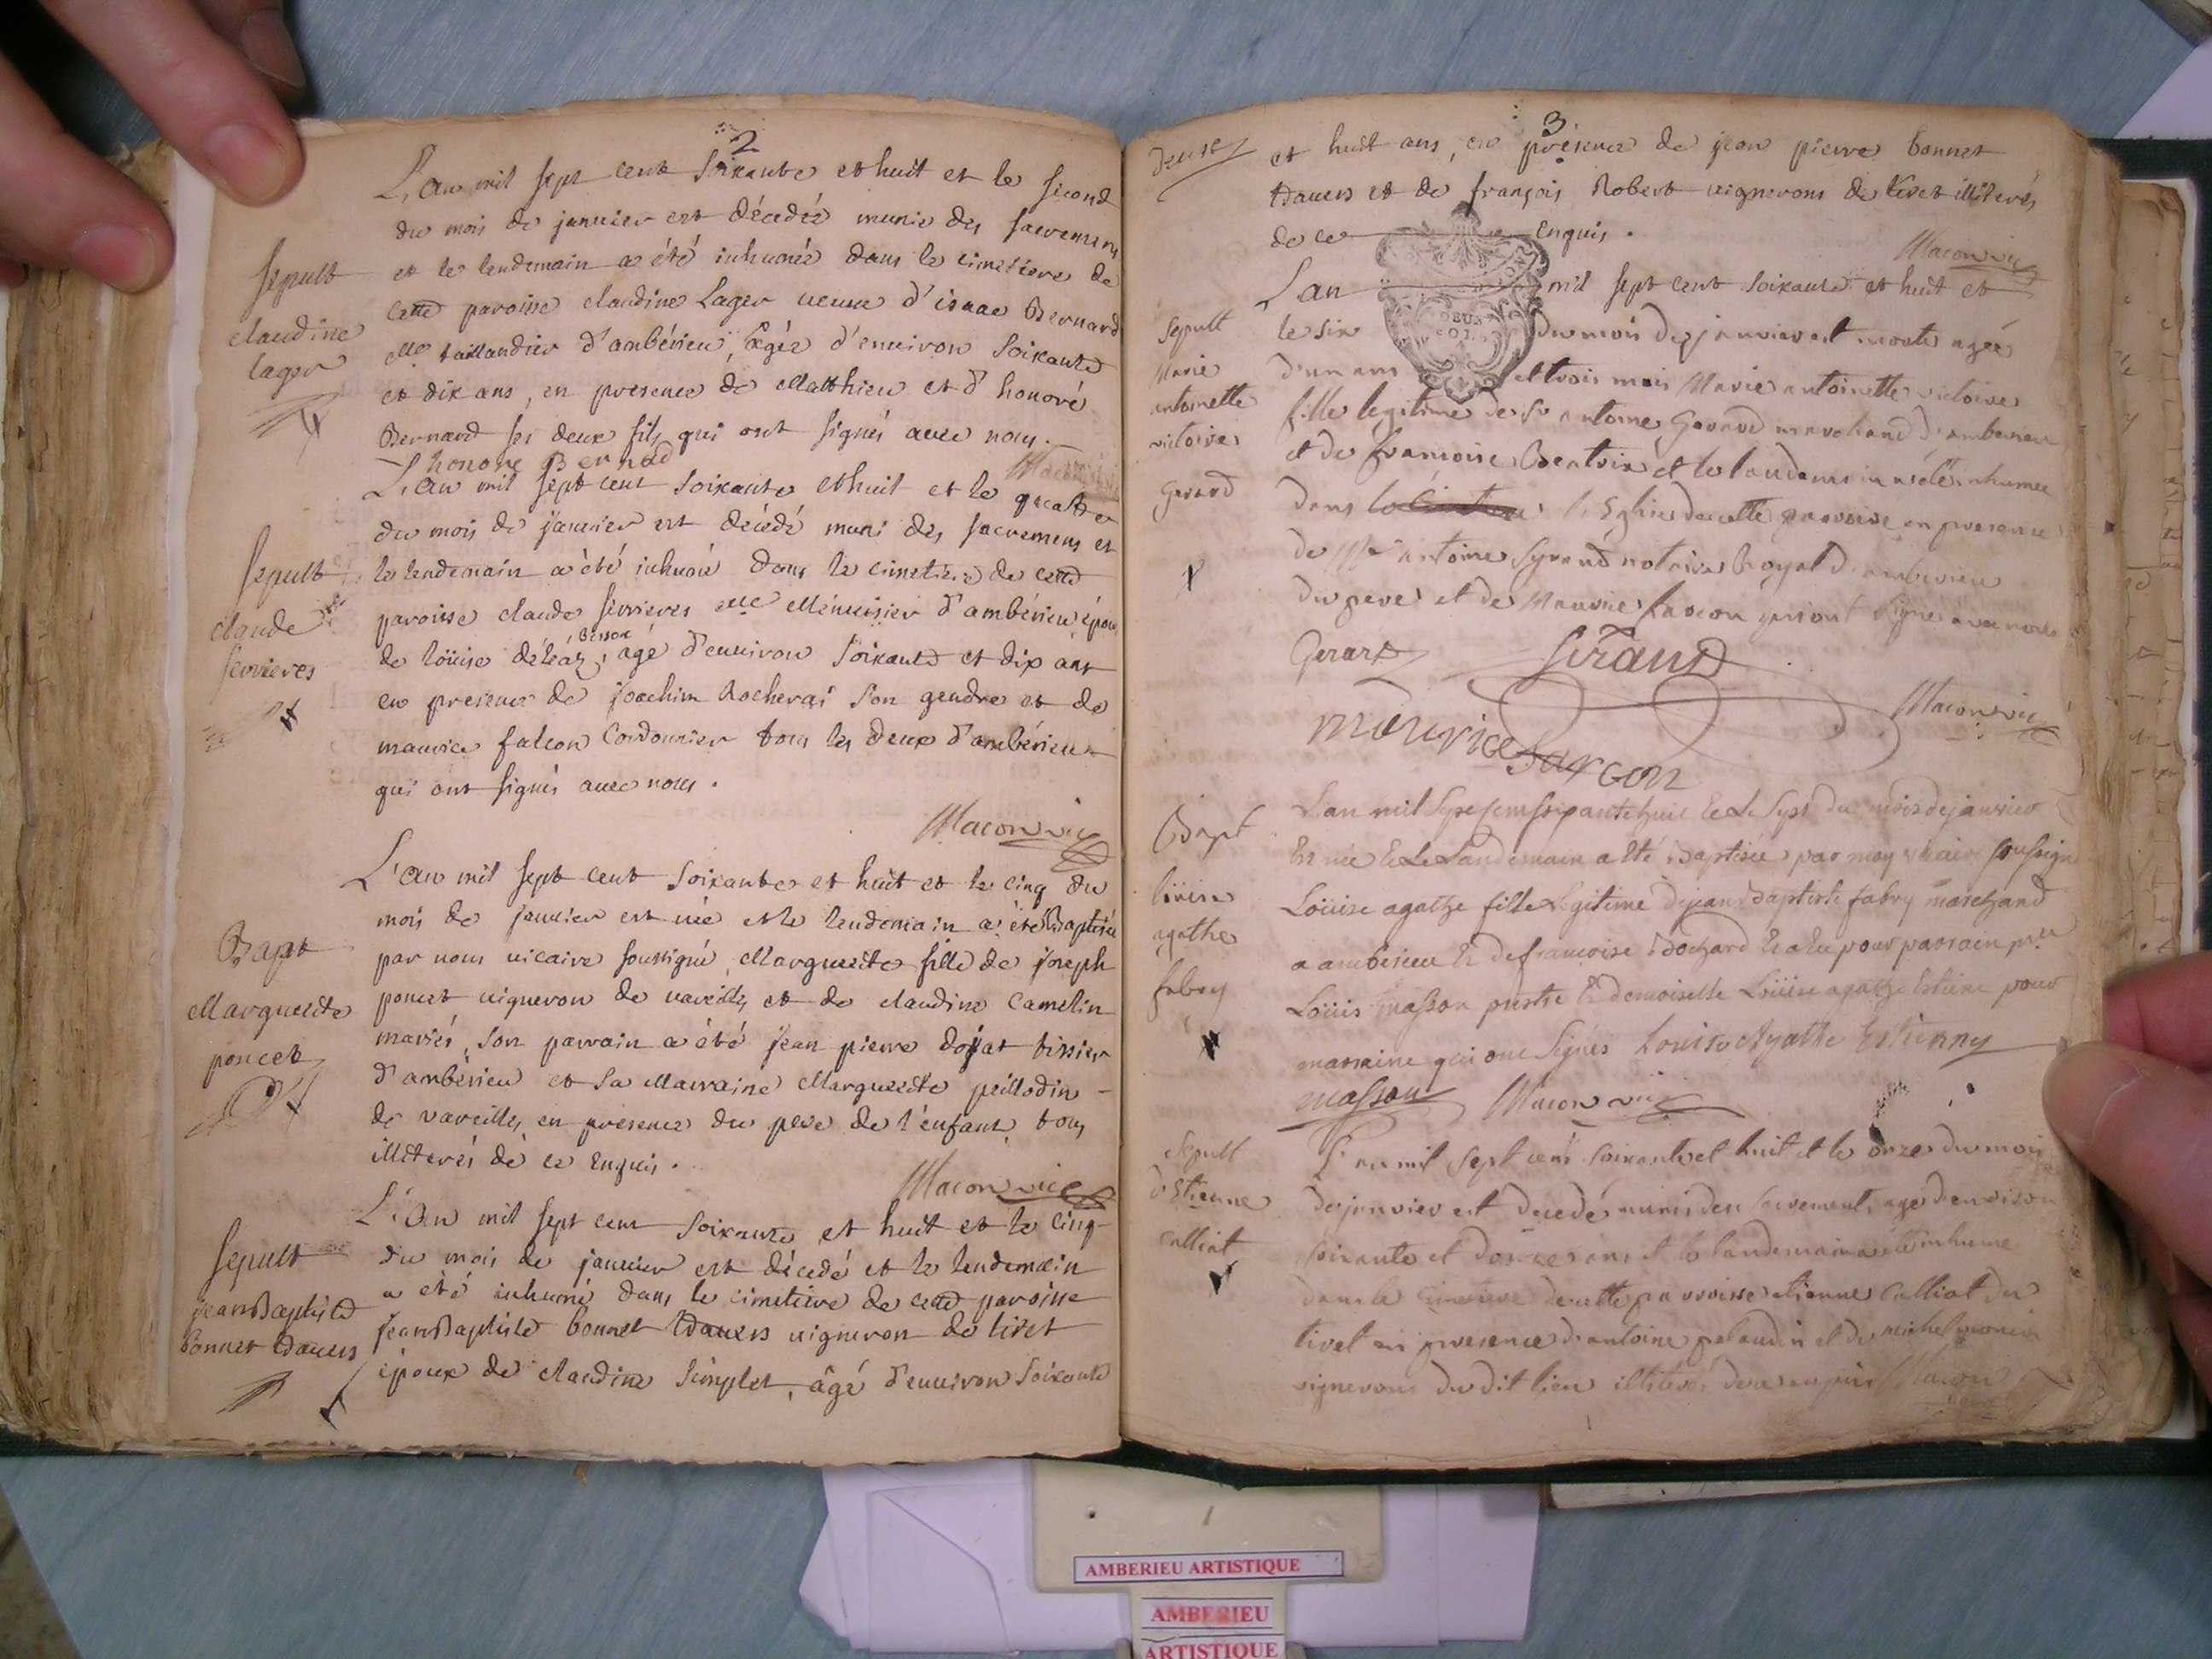 2
L'an mil sept cent soixante et huit et le second
du mois de janvier est décédée munie des sacremens
et le lendemain a été inhumée dans le cimetiere de
cette paroisse claudine Lager veuve d'isaac Bernard
taillandier d'ambérieu, agée d'environ soixante
et dix ans, en presence de Matthieu et d'honoré
Bernard ses deux fils qui ont signés avec nous.
honore Bernad
Sepult
claudine
lager
L'an mil sept cent soixante et huit et le quatre
du mois de janvier est décédé muni des sacremens et
le lendemain a été inhumé dans le cimetiere de cette
paroisse claude servieres Menuisier d'ambérieu époux
de loüise deléaz, agé d'environ soixante et dix ans
en presence de joachim Rocherai son gendre et de
maurice falcon Cordonnier tous les deux d'ambérieu
qui ont signés avec nous.
Macon vic
Sepult
claude
servieres
L'an mil sept cent soixante et huit et le cinq du
mois de janvier est née et le lendemain a été Baptisée
par nous vicaire soussigné, Marguerite fille de joseph
poncet vigneron de vareilles et de claudine Camelin
mariés, son parrain a été jean pierre dojat tissier
d'ambérieu et sa Marraine Marguerite peillodin
de vareilles, en presence du pere de l'enfant, tous
illiterés de ce enquis.
Macon vic
Bapt
Marguerite
poncet
L'an mil sept cent soixante et huit et le cinq
du mois de janvier est décédé et le lendemain
a été inhumé dans le cimetiere de cette paroisse
jean Baptiste bonnet vigneron de tiret
époux de claudine simplet, âgé d'environ soixante
Sepult
jean Baptiste
bonnet
3
et huit ans, en présence de jean pierre bonnet
et de françois Robert vignerons de tiret illiterés
de ce enquis.
Macon vic
L'an mil sept cent soixante et huit et
le six du mois de janvier est morte agée
d'un ans et trois mois Marie antoinette victoire
fille legitime de Sr antoine Gerard marchand d'amberieu
et de francoise Beatrix et le landemain a été inhumee
dans l'Eglise de cette paroisse en presence
de Me antoine Syrand notaire Royal d'amberieu
du pere et de Maurice farcon qui ont signe avec nous
Gerard Sirand
Macon vic
mourice farcon
Sepult
Marie
antoinette
victoire
Gerard
L'an mil sept cent soixante huit et le sept du mois de janvier
Est née et le landemain a été baptisée par moy vicaire soussigné
Loüise agathe fille legitime de jean baptiste fabry marchand
a amberieu et de francoise bochard et a eu pour parrain
Loüis masson prestre et demoiselle Loüise agathe Estienne pour
marraine qui ont signés Louise Agathe Estienny
masson Macon vic
Bapt
loüise
agathe
fabry
L'an mil sept cens soixante et huit et le onze du mois
de janvier est decedé munis des sacrements age d'environ
soixante et ans et le landemain a été inhumé
dans le cimetiere de cette paroisse etienne Calliat du
tiret en presence d'antoine pelaudin et de michel
vignerons du dit lieu illiterés de ce enquis Macon
Sepult
d'Etienne
calliat
AMBERIEU ARTISTIQUE
AMBERIEU
ARTISTIQUE